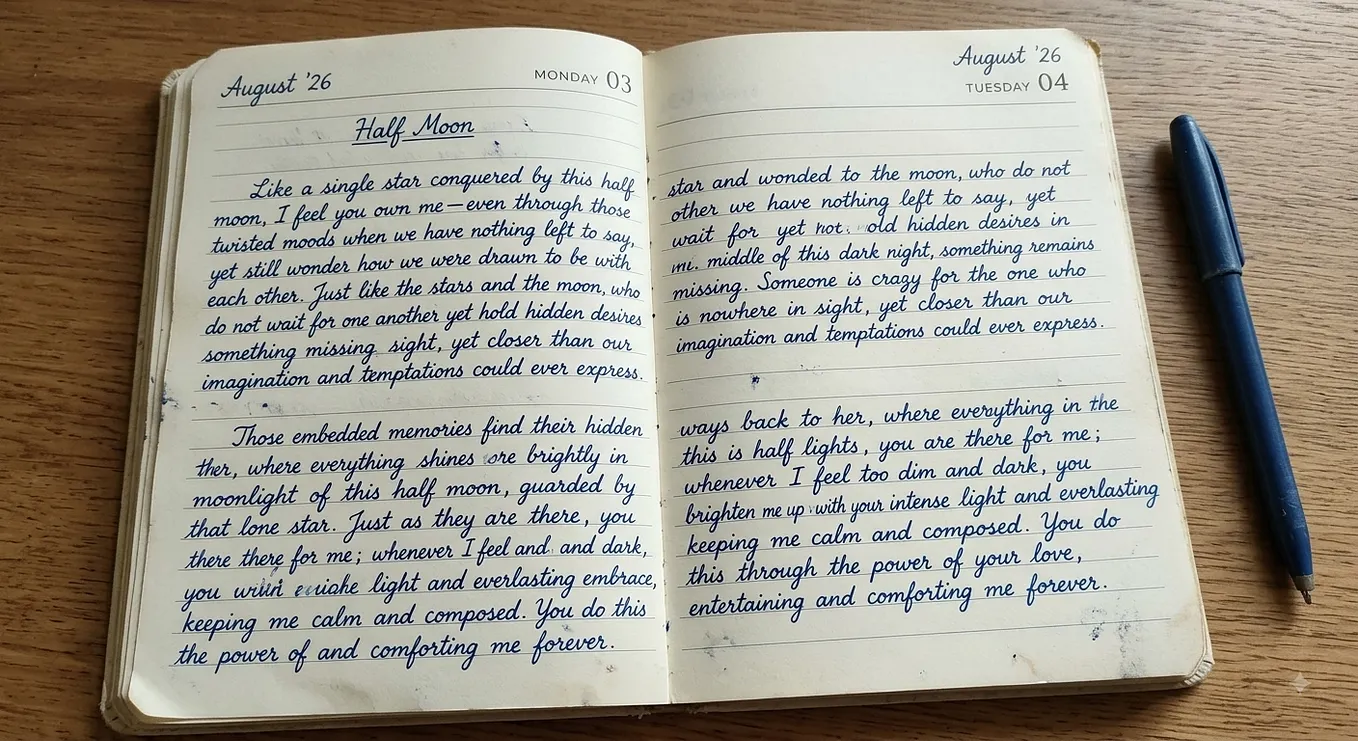 August '26
MONDAY 03
Half Moon
Like a single star conquered by this half
moon, I feel you own me—even through those
twisted moods when we have nothing left to say,
yet still wonder how we were drawn to be with
each other. Just like the stars and the moon, who
do not wait for one another yet hold hidden desires
something missing sight, yet closer than our
imagination and temptations could ever express.
Those embedded memories find their hidden
ther, where everything shines ore brightly in
moonlight of this half moon, guarded by
that lone star. Just as they are there, you
there there for me; whenever I feel and and dark,
you light and everlasting embrace,
keeping me calm and composed. You do this
the power of and comforting me forever.
August '26
TUESDAY 04
star and wonded to the moon, who do not
other we have nothing left to say, yet
wait for yet not old hidden desires in
middle of this dark night, something remains
missing. Someone is crazy for the one who
is nowhere in sight, yet closer than our
imagination and temptations could ever express.
ways back to her, where everything in the
this is half lights, you are there for me;
whenever I feel too dim and dark, you
brighten me up with your intense light and everlasting
keeping me calm and composed. You do
this through the power of your love,
entertaining and comforting me forever.